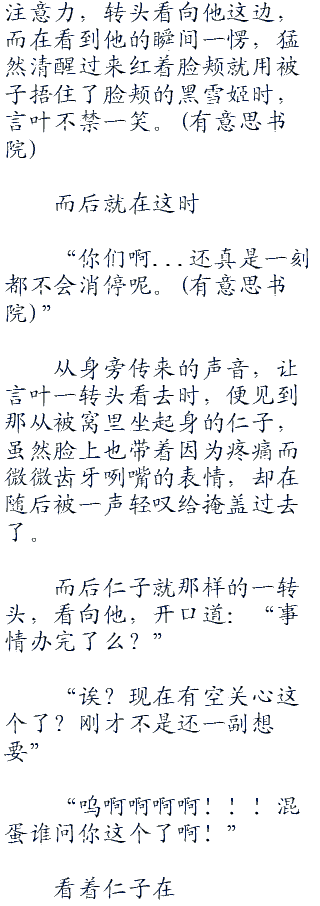 注意力，转头看向他这边，
而在看到他的瞬间一愣，猛
然清醒过来红着脸颊就用被
子捂住了脸颊的黑雪姬时，
言叶不禁一笑。(有意思书
院)
而后就在这时
“你们啊...还真是一刻
都不会消停呢。(有意思书
院)”
从身旁传来的声音，让
言叶一转头看去时，便见到
那从被窝里坐起身的仁子，
虽然脸上也带着因为疼痛而
微微齿牙咧嘴的表情，却在
随后被一声轻叹给掩盖过去
了。
而后仁子就那样的一转
头，看向他，开口道：“事
情办完了么？”
“诶？现在有空关心这
个了？刚才不是还一副想
要”
“呜啊啊啊啊！！！混
蛋谁问你这个了啊！”
看着仁子在